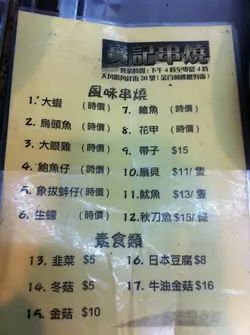 寶記串燒
營業時間：下午4時至晚上4時
風味串燒
1. 大蝦 (時價) 7. 鮑魚 (時價)
2. 烏頭魚 (時價) 8. 花甲 (時價)
3. 大眼雞 (時價) 9. 帶子 $15
4. 鮑魚仔 (時價) 10. 扇貝 $11/隻
5. 象拔蚌仔 (時價) 11. 魷魚 $15/隻
6. 生蠔 (時價) 12. 秋刀魚 $15/條
素食類
13. 韮菜 $5 16. 日本豆腐 $8
14. 冬菇 $5 17. 牛油金菇 $16
15. 金菇 $10